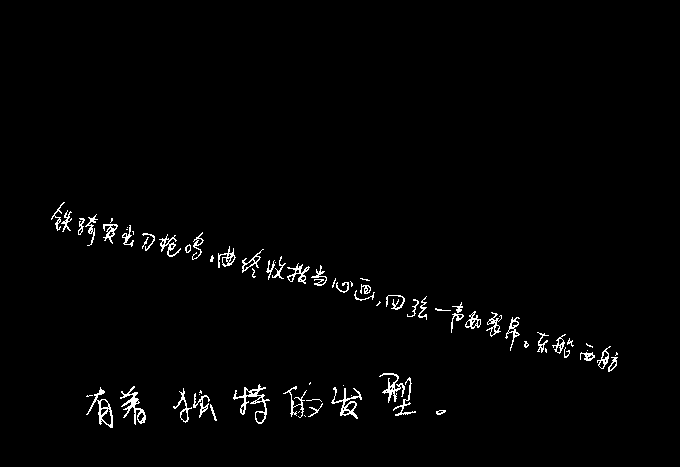 铁骑突出刀枪鸣。曲终收拨当心画,四弦一声如裂帛。东船西舫
有着独特的发型。